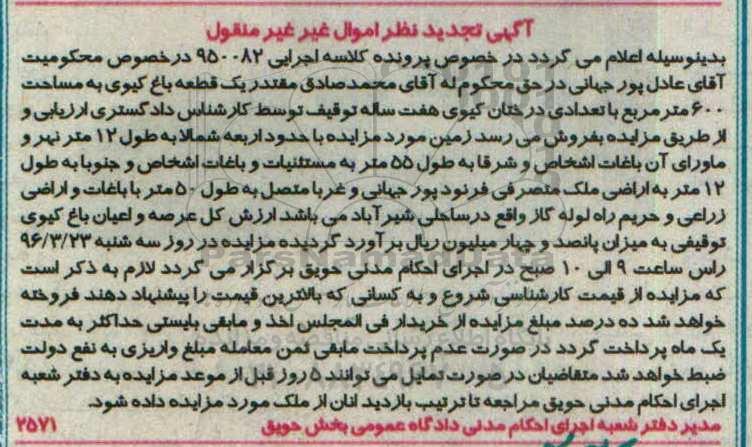 آگهی تجدید نظر اموال غیر غیر منقول
بدینوسیله اعلام می گردد در خصوص پرونده کلاسه اجرایی ۹۵۰۰۸۲ درخصوص محکومیت
آقای عادل پور جهانی در حق محکوم له آقای محمدصادق مقتدر یک قطعه باغ کیوی به مساحت
۶۰۰ متر مربع با تعدادی درختان کیوی هفت ساله توقیف توسط کارشناس دادگستری ارزیابی و
از طریق مزایده بفروش می رسد زمین مورد مزایده با حدود اربعه شمالا به طول ۱۲ متر نهر و
ماورای آن باغات اشخاص و شرقا به طول ۵۵ متر به مستثنیات و باغات اشخاص و جنوبا به طول
۱۲ متر به اراضی ملک متصرفی فرنود پور جهانی و غربا متصل به طول ۵۰ متر با باغات و اراضی
زراعی و حریم راه لوله گاز واقع درساحلی شیر آباد می باشد ارزش کل عرصه و اعیان باغ کیوی
توقیفی به میزان پانصد و چهار میلیون ریال بر آورد گردیده مزایده در روز سه شنبه ۹۶/۳/۲۳
راس ساعت ۹ الی ۱۰ صبح در اجرای احکام مدنی حویق برگزار می گردد لازم به ذکر است
که مزایده از قیمت کارشناسی شروع و به کسانی که بالاترین قیمت را پیشنهاد دهند فروخته
خواهد شد ده درصد مبلغ مزایده از خریدار فی المجلس اخذ و مابقی بایستی حداکثر به مدت
یک ماه پرداخت گردد در صورت عدم پرداخت مابقی ثمن معامله مبلغ واریزی به نفع دولت
ضبط خواهد شد متقاضیان در صورت تمایل می توانند ۵ روز قبل از موعد مزایده به دفتر شعبه
اجرای احکام مدنی حویق مراجعه تا ترتیب بازدید انان از ملک مورد مزایده داده شود.
مدیر دفتر شعبه اجرای احکام مدنی دادگاه عمومی بخش حویق ۲۵۷۱
ParsNamadData